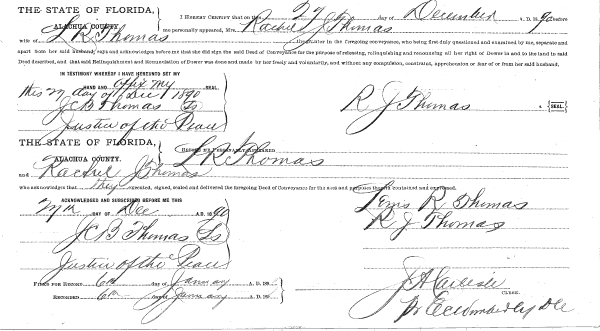 THE STATE OF FLORIDA,
ALACHUA COUNTY.
I HEREBY CERTIFY that on the 27 day of December A. D. 18 90 before
me personally appeared, Mrs. Rachel J Thomas
wife of L R Thomas the grantor in the foregoing conveyance, who being first duly questioned and examined by me, separate and
apart from her said husband, says and acknowledges before me that she did sign the said Deed of Conveyance for the purpose of releasing, relinquishing and renouncing all her right of Dower in and to the land in said
Deed described, and that said Relinquishment and Renunciation of Dower was done and made by her freely and voluntarily, and without any compulsion, constraint, apprehension or fear of or from her said husband.
IN TESTIMONY WHEREOF I HAVE HEREUNTO SET MY
HAND AND affix my SEAL
this 27 day of Dec 1890
J C B Thomas Ls
Justice of the Peace
R J Thomas
SEAL.
THE STATE OF FLORIDA,
ALACHUA COUNTY.
BEFORE ME PERSONALLY APPEARED L R Thomas
and Rachel J Thomas
who acknowledges that they executed, signed, sealed and delivered the foregoing Deed of Conveyance for the uses and purposes therein contained and expressed.
ACKNOWLEDGED AND SUBSCRIBED BEFORE ME THIS
27th DAY OF Dec A. D. 18 90
J C B Thomas Ls
Justice of the Peace
R Thomas
R J Thomas
FILED FOR RECORD 6th day of January A. D. 18
RECORDED 6th day of January A. D. 18
J A Carlisle
CLERK.